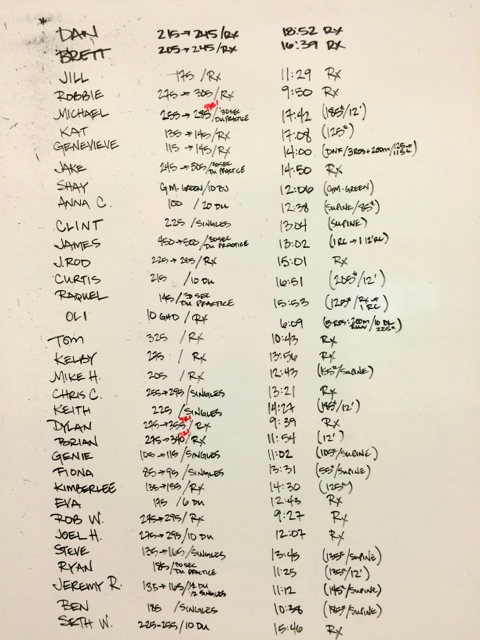 DAN 215→245/RX 18:52 RX
BRETT 205→245/RX 16:39 RX
JILL 175 /RX 11:29 RX
ROBBIE 275→305/RX 9:50 RX
MICHAEL 255→295/30SEC DU PRACTICE 17:42 (185#/12')
KAT 135→145/RX 17:08 (125#)
GENEVIEVE 115→145/RX 14:00 (DNF/3RDS+200m/
JAKE 245→305/30SEC DU PRACTICE 14:50 RX
SHAY G.M. GREEN/10 DU 12:06 (G.M. GREEN)
ANNA C. 100 / 20 DU 12:38 (SUPINE/85#)
CLINT 225 /SINGLES 13:04 (SUPINE)
JAMES 450→500/30SEC DU PRACTICE 13:02 (1 RC→1 12'RC)
J.ROD 225→255/RX 15:01 RX
CURTIS 215 /10 DU 16:51 (205#/12')
RAQUEL 145/30 SEC DU PRACTICE 15:53 (125#/RX→1 RC)
OLI 10 GHD / RX 6:09
TOM 325 / RX 10:43 RX
KELBY 275 / RX 13:56 RX
MIKE H. 205 / RX 12:43 (155#/SUPINE)
CHRIS C. 255→295/SINGLES 13:21 RX
KEITH 225 /SINGLES 14:27 (185#/12')
DYLAN 275→355/RX 9:39 RX
BRIAN 275→340/RX 11:54 (12')
GENIE 105→115/SINGLES 11:02 (105#/SUPINE)
FIONA 85→95/SINGLES 13:31 (55#/SUPINE)
KIMBERLEE 135→155/RX 14:30 (125#)
EVA 175 /6 DU 12:43 RX
ROB W. 275→295/RX 9:27 RX
JOEL H. 275→295/10 DU 12:07 RX
STEVE 135→165/SINGLES 13:45 (135#/SUPINE)
RYAN 185/30SEC DU PRACTICE 11:25 (135#/12')
JEREMY R. 135→165/12 DU 12 SINGLES 11:12 (145#/SUPINE)
BEN 185 /SINGLES 10:38 (185#/SUPINE)
SETH W. 225-255/10 DU 15:46 RX